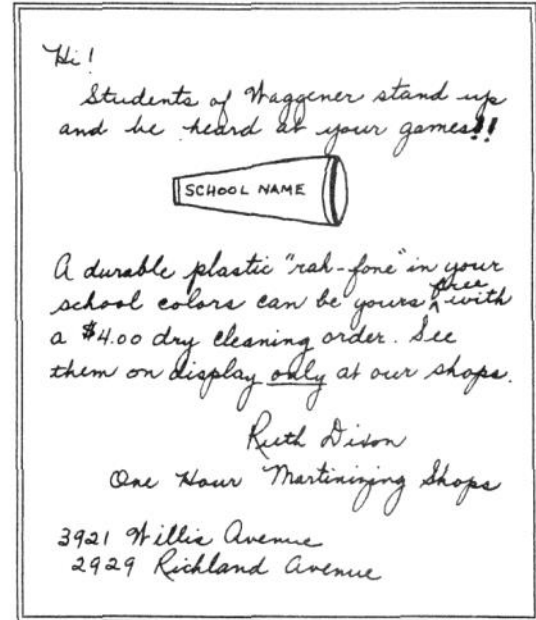 Hi!
Students of Waggener stand up
and be heard at your games!!
SCHOOL NAME
A durable plastic "rah-fone" in your
school colors can be yours free with
a $4.00 dry cleaning order. See
them on display only at our shops.
Ruth Dixon
One Hour Martinizing Shops
3921 Willis Avenue
2929 Richland Avenue